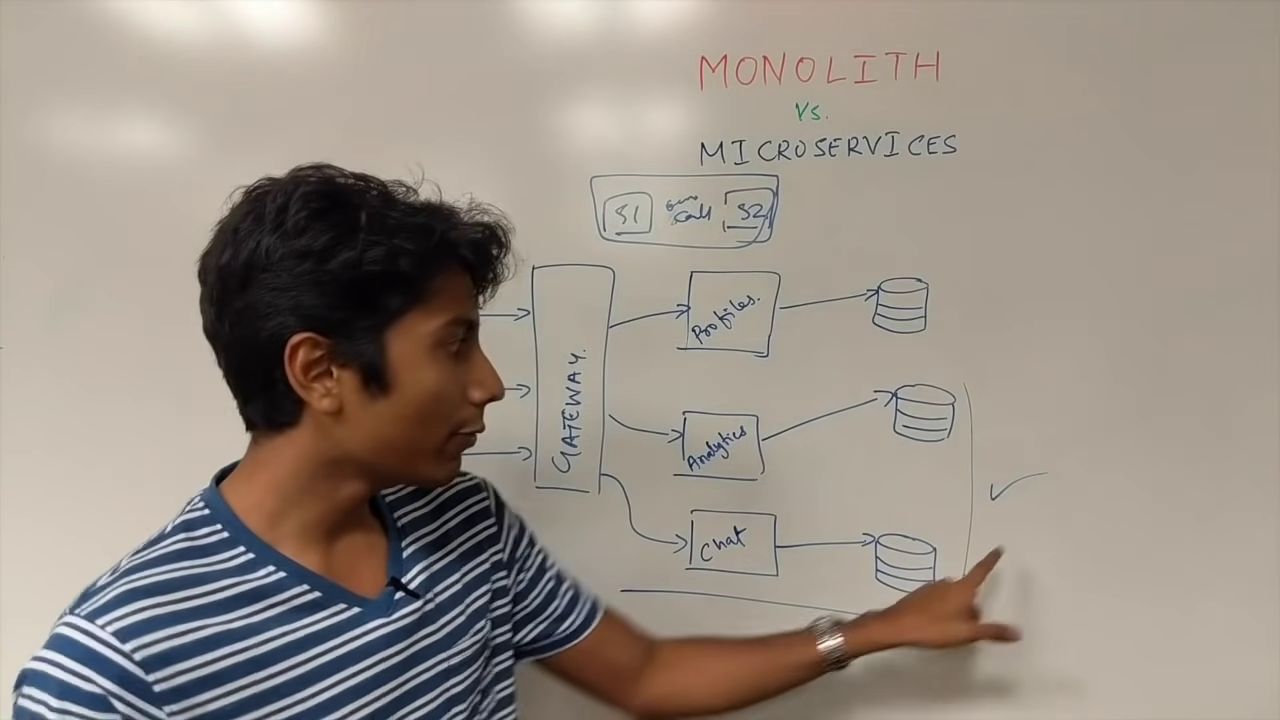 MONOLITH
Vs.
MICROSERVICES
S1
call
S2
GATEWAY.
Profiles.
Analytics
Chat